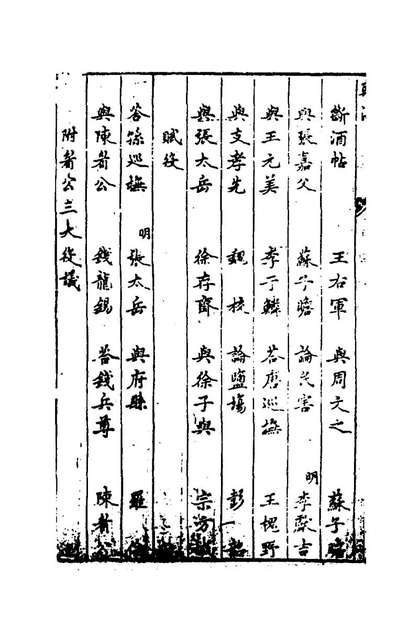 斷酒帖 王右軍 與周文之 蘇子瞻
與張嘉父 蘇子瞻 論災害 明 李獻吉
與王元美 李于鱗 荅唐巡撫 王槐野
與支孝先 魏校 論鹽場 彭韶
與張太岳 徐存齋 與徐子與 宗方城
賦役
荅孫巡撫 明 張太岳 與府縣 羅
與陳眷公 錢龍錫 荅錢兵尊 陳眷公
附眷公三大役議